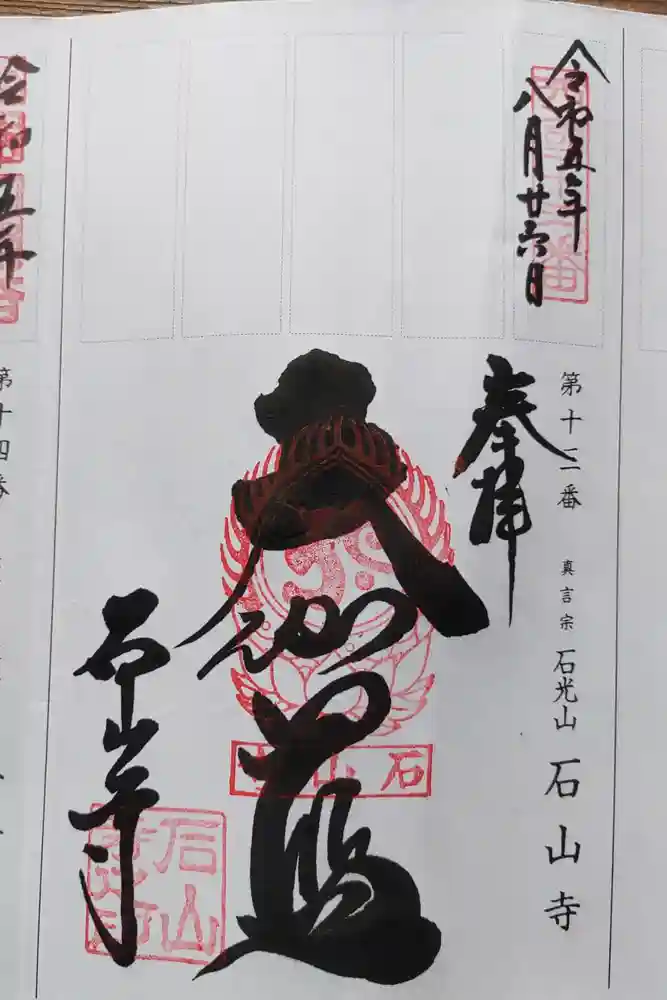 令和五年
八月廿六日
西国十三番
奉拝
第十三番 真言宗 石光山 石山寺
大伽藍
石山寺
石山寺
石山
令和五年
第十四番